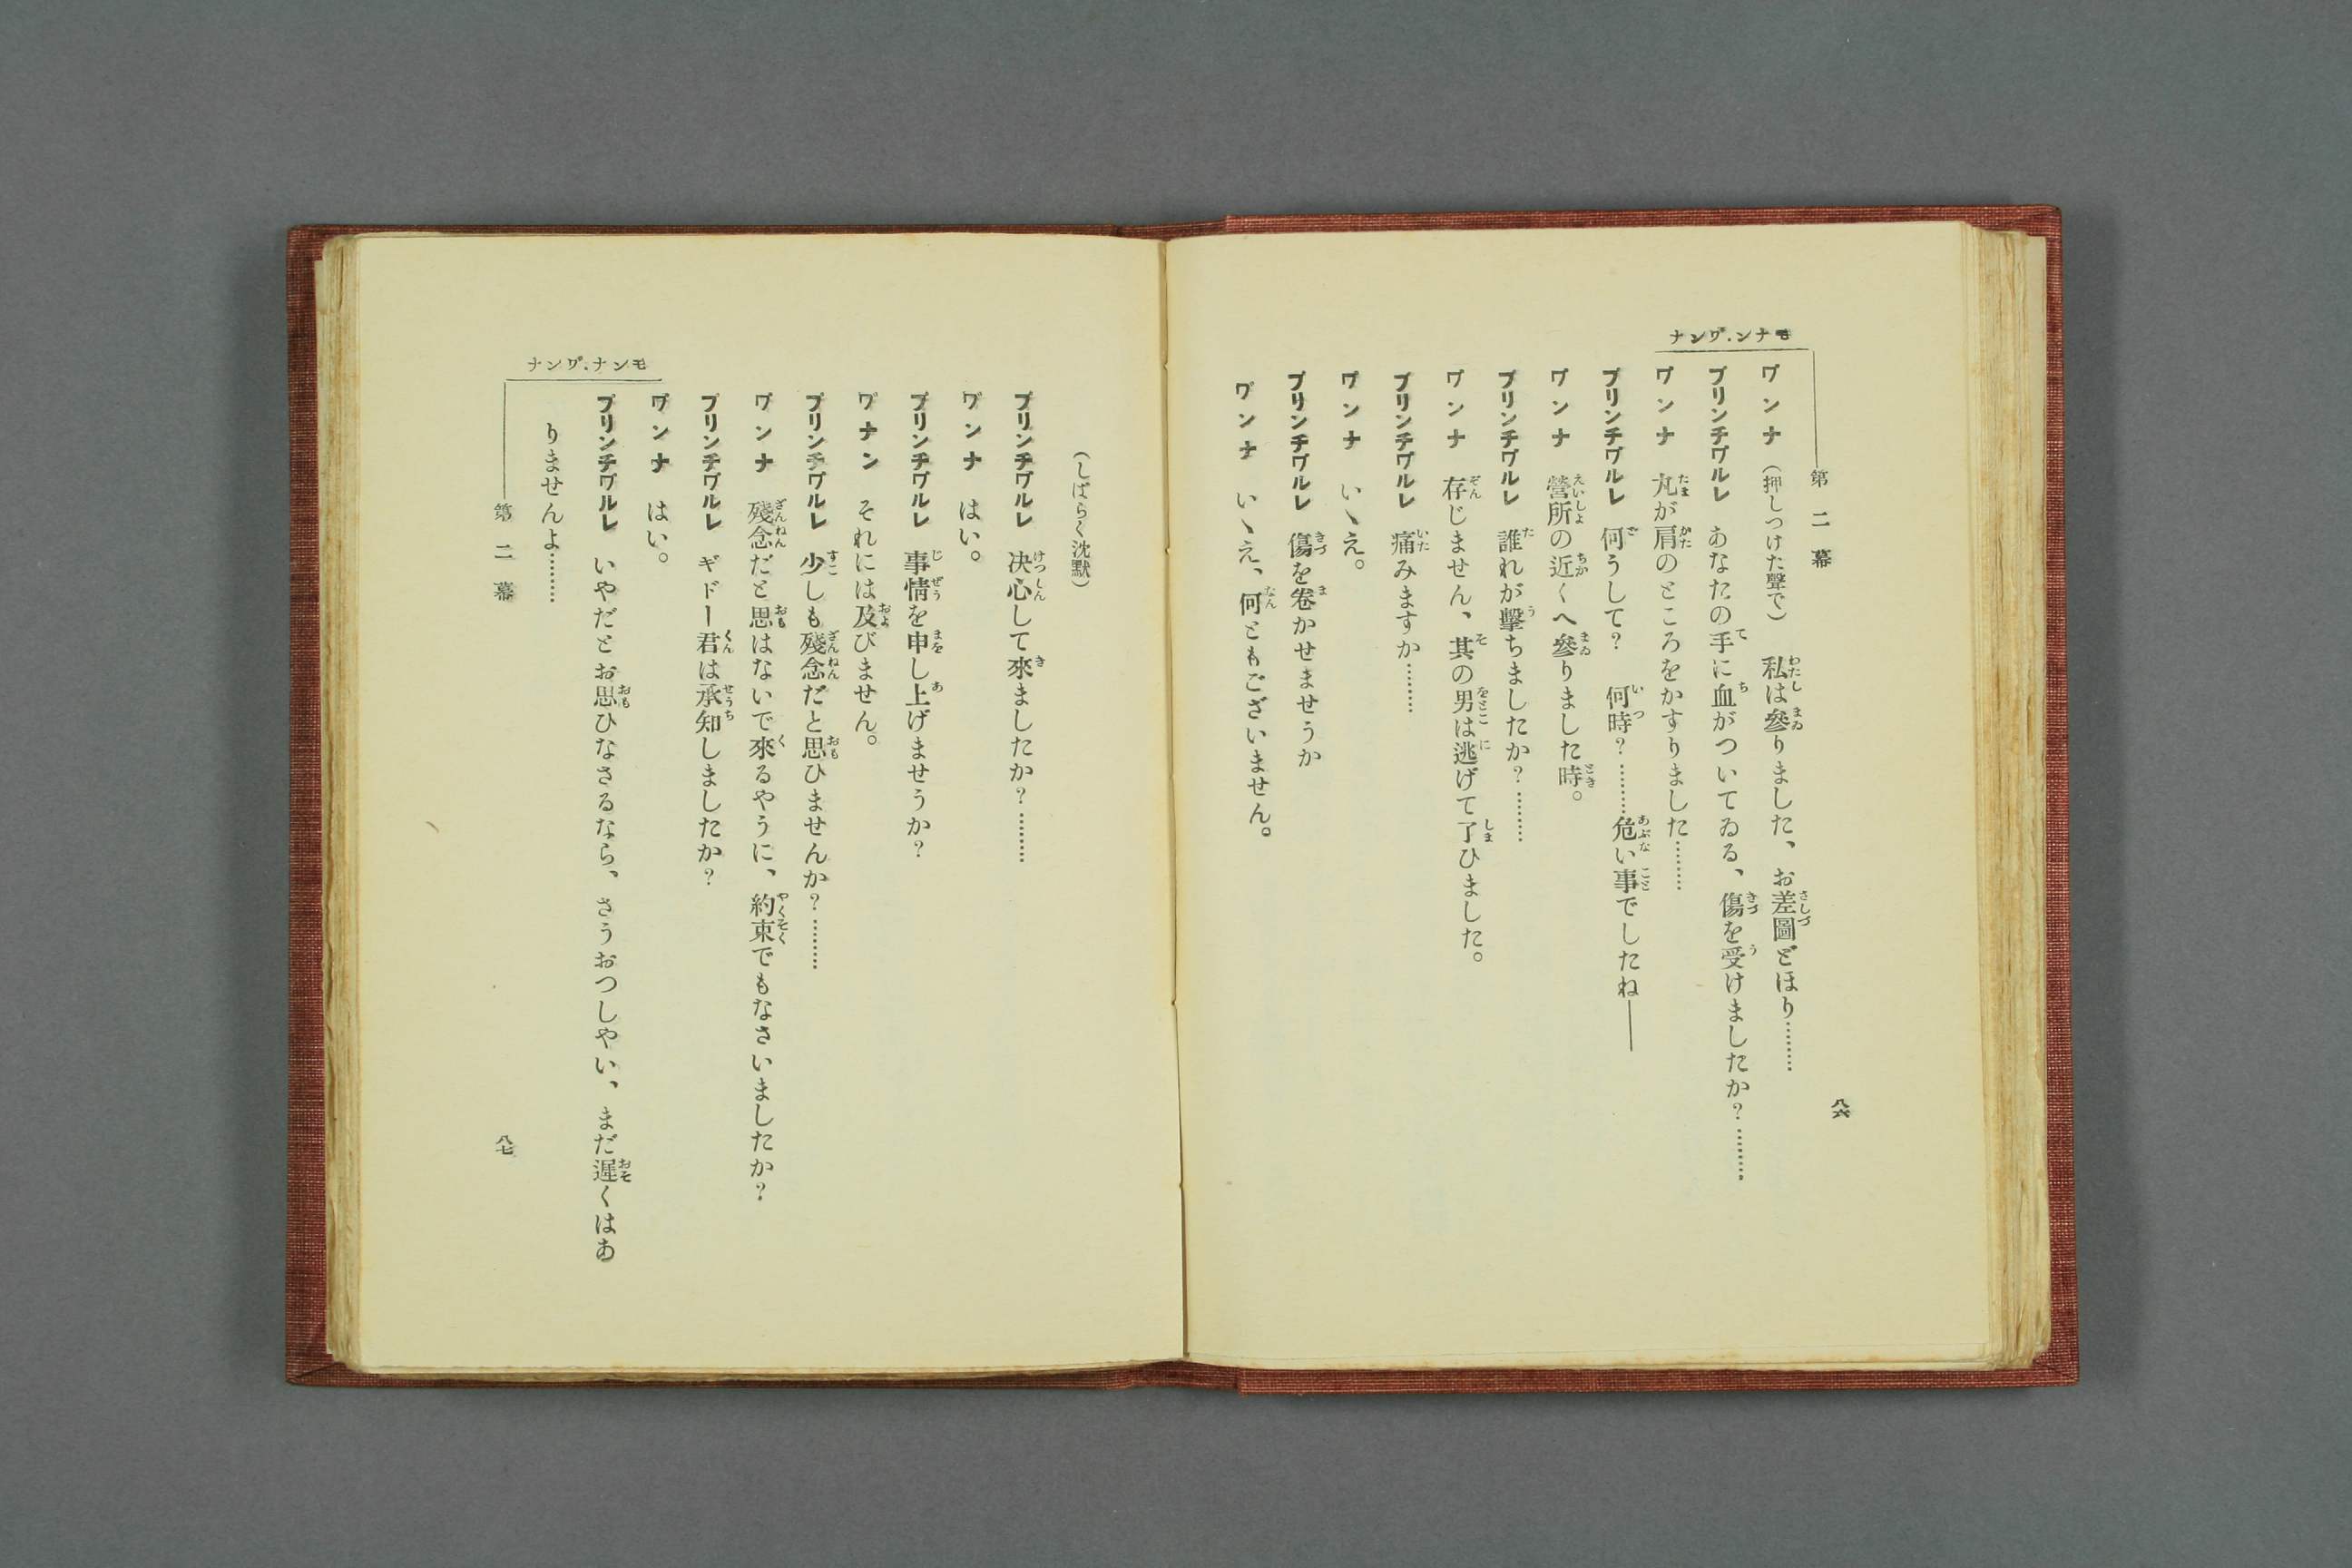 モナン.ヷンナ
第二幕
八六
ヷンナ (押しつけた聲で) 私は參りました、お差圖どほり………
プリンチヷルレ あなたの手に血がついてゐる、傷を受けましたか?………
ヷンナ 丸が肩のところをかすりました………
プリンチヷルレ 何うして? 何時?………危い事でしたね――
ヷンナ 營所の近くへ參りました時。
プリンチヷルレ 誰れが擊ちましたか?………
ヷンナ 存じません、其の男は逃げて了ひました。
プリンチヷルレ 痛みますか………
ヷンナ いゝえ。
プリンチヷルレ 傷を卷かせませうか
ヷンナ いゝえ、何ともございません。
(しばらく沈默)
プリンチヷルレ 决心して來ましたか?………
ヷンナ はい。
プリンチヷルレ 事情を申し上げませうか?
ヷナン それには及びません。
プリンチヷルレ 少しも殘念だと思ひませんか?………
ヷンナ 殘念だと思はないで來るやうに、約束でもなさいましたか?
プリンチヷルレ ギドー君は承知しましたか?
ヷンナ はい。
プリンチヷルレ いやだとお思ひなさるなら、さうおつしやい、まだ遲くはあ
りませんよ………
モンナ.ヷンナ
第二幕
八七